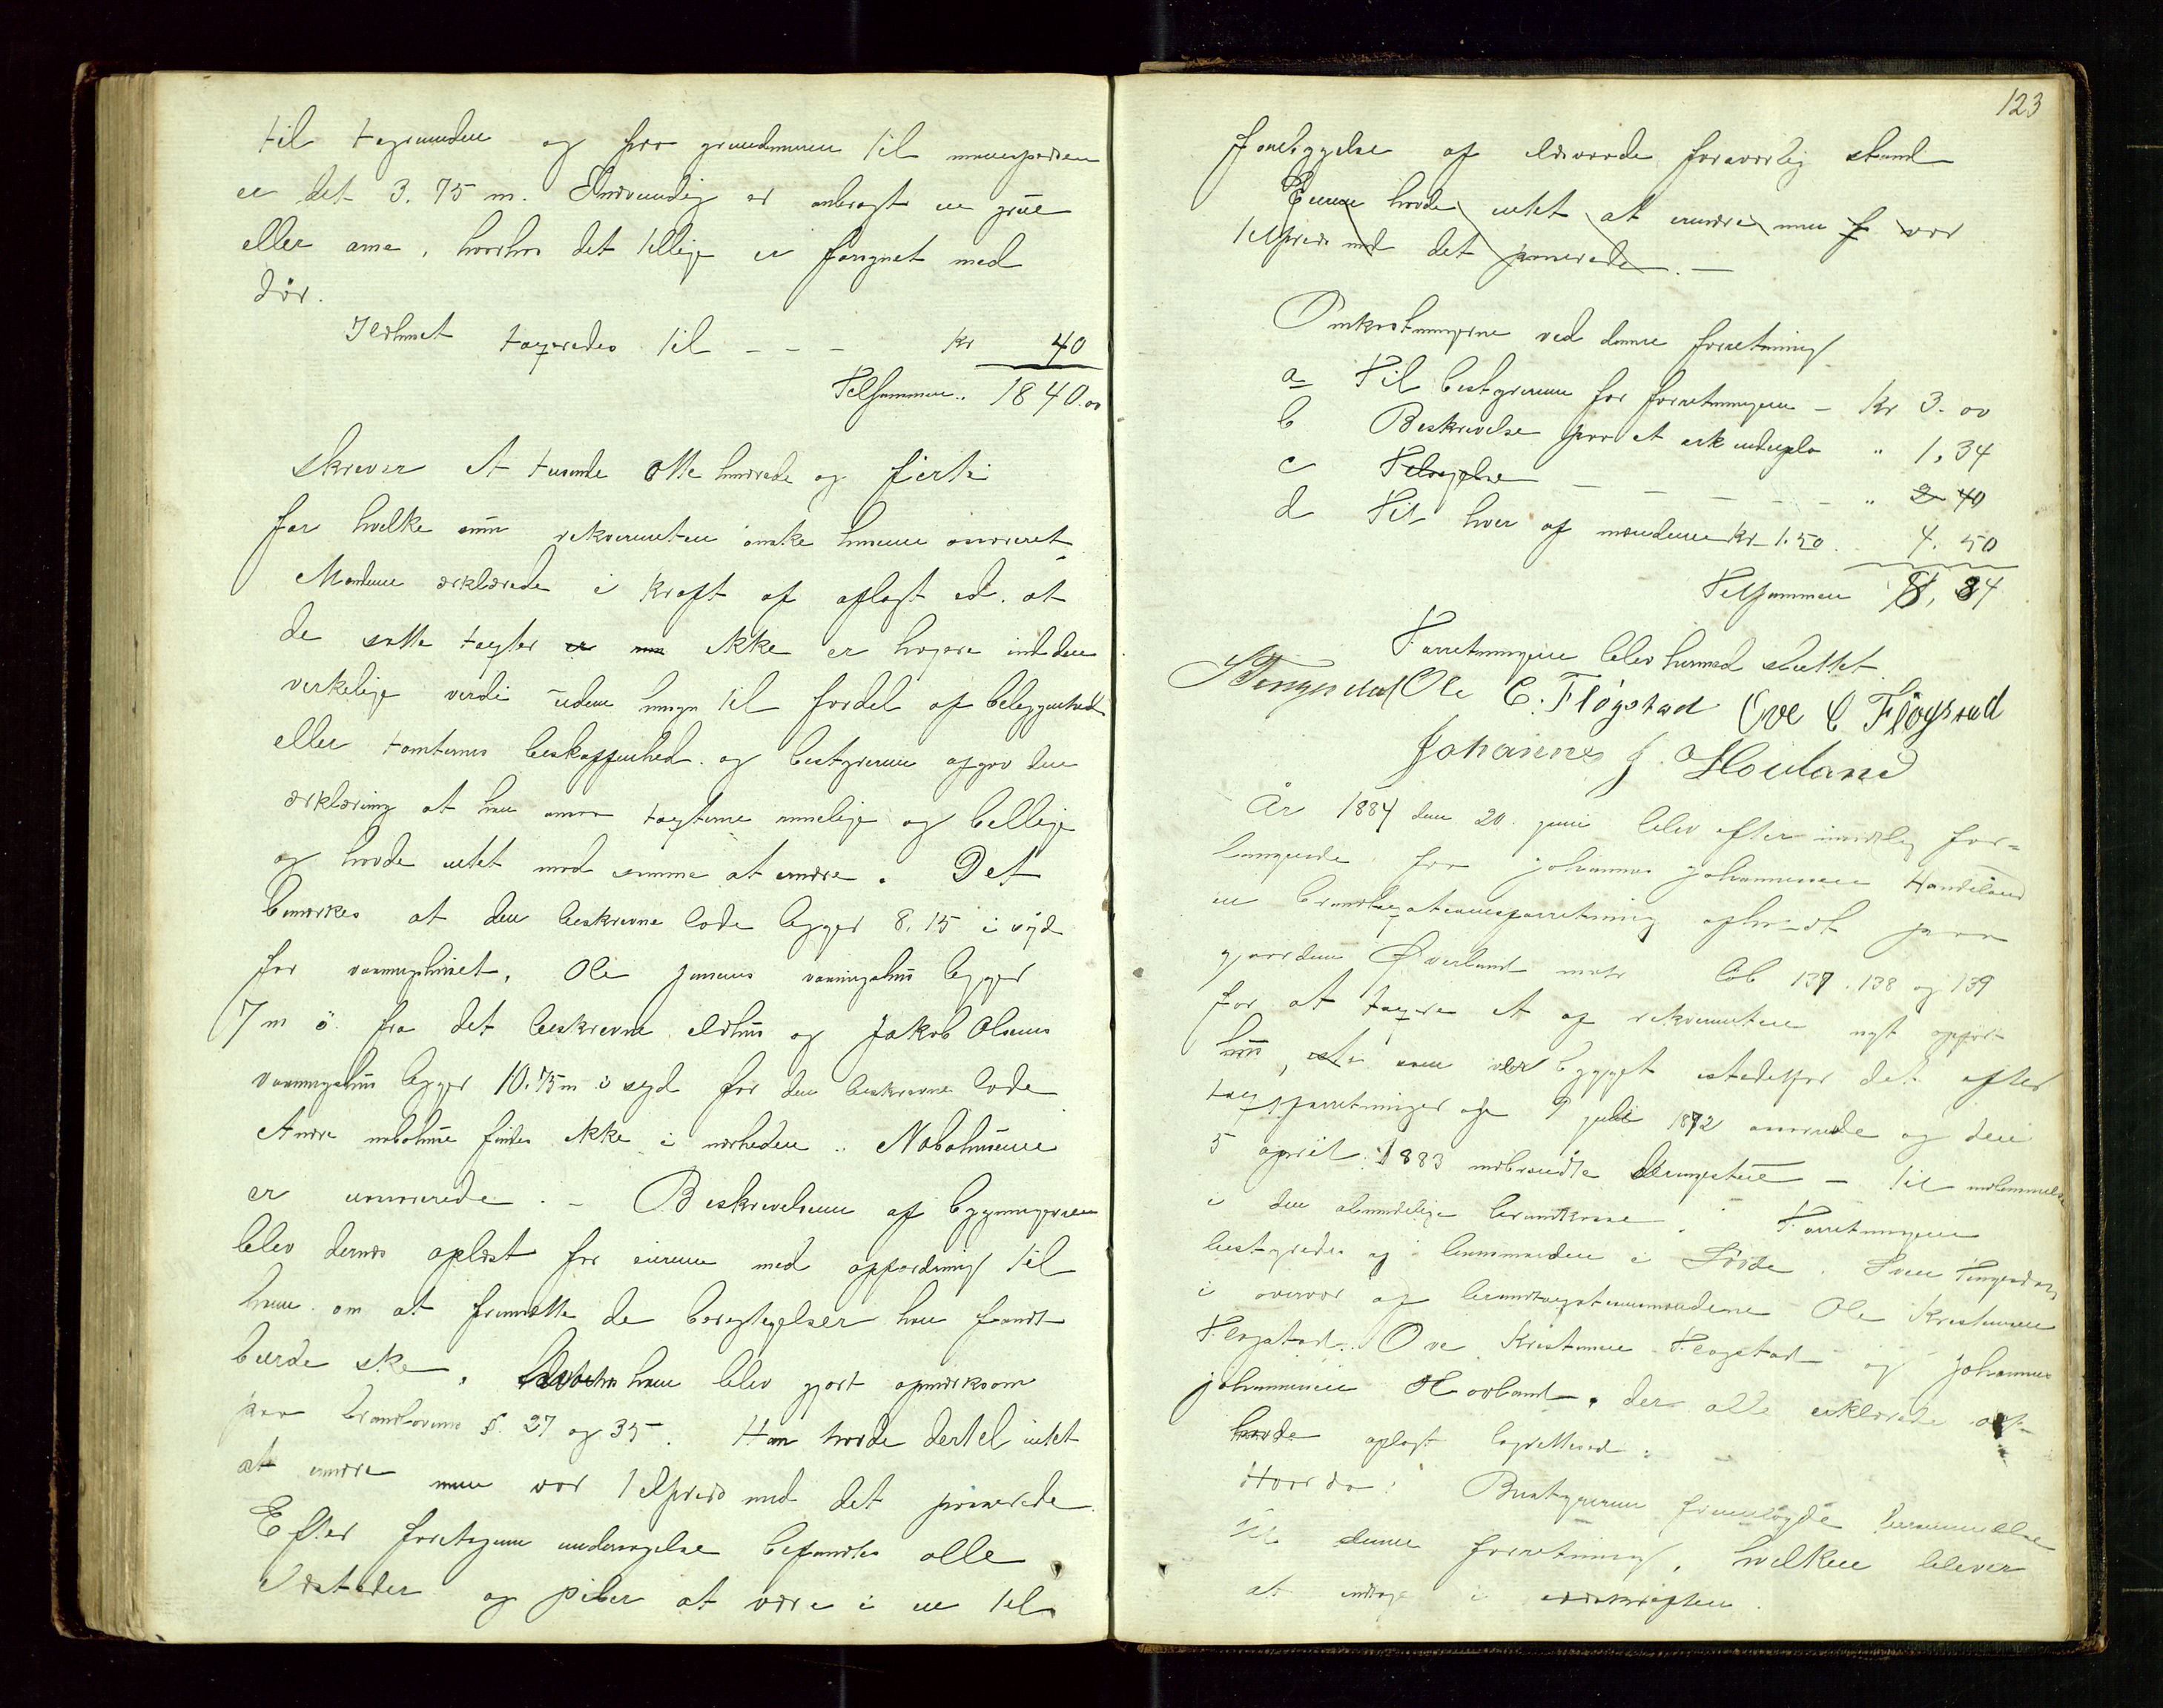 til tagrunden og fra grundmuren til mønespidsen
er det 3.75 m. Indvendig er anbragt en grue
eller arne, hvorhos det tillige er forsynet med
dør.
Ildhuset taxeredes til - - - kr 40
Tilsammen.. 1840.00
skriver et tusende otte hundrede og firti
for hvilke sum rekvirenten ønske husene assureret.
Mændene erklærede i kraft af aflagt ed. at
de satte taxter ikke er høyere end den
verkelige verdi uden hensyn til fordel af beleggenhed
eller tomternes beskaffenhed. og bestyreren afgav den
erklæring at han ansaa taxterne rimelige og bellige
og havde intet mod samme at erindre. Det
bemærkes at den beskrevne lode legger 8.15 i syd
for vaaningshuset. Ole Jensens vaaningshus legger
7 m ø. fra det beskrevne eldhus og Jakob Olsens
vaaningshus legger 10.75 m i syd for den beskrevne lode
Andre nabohuse findes ikke i nærheden.. Nabohusene
er uassurerede. - Beskrivelsen af bygningerne
blev dernæs oplæst for eieren med opfordring til
ham om at fremsætte de berigtigelser han fandt
burde ske. han blev gjort opmærksom
paa brandlovens §. 27 og 35. Han havde dertil intet
at erindre men var tilfreds med det passerede
Efter foretagen undersøgelse befandtes alle
ildsteder og piber at være i en til
123
forebyggelse af ildsvaade forsvarlig stand
Eieren havde intet at erindre men var
tilfreds med det passerede. -
Omkostningerne ved denne forretning
a Til bestyreren for forretningen - Kr 3.00
b Beskrivelse paa et ark " 1,34
c Tilsigelse - - - - - " 2 40
d Til hver af mændene kr 1.50. 4.50
Tilsammen 8,84
Forretningen blev hermed sluttet.
Tengesdal Ole C. Fløgstad Ove C Fløgstad
Johannes J. Hovland
År 1884 den 20. juni blev efter mundtlig for=
langende fra Johannes Johannessen Handeland
en brandtaxationsforretning afholdt paa
gaarden Øverland matr löb 137. 138 og 139
for at taxere et af rekvirenten nyt opført
hus, som var bygget istedetfor det efter
taxtforretninger af 9 juli 1872 assurerede og den
5 april 1883 nedbrændte - til indlemmelse
i den almindelige brandkasse. Forretningen
bestyredes af lensmanden i Søvde. Sven Tengesdal
i overvær af brandtaxationsmændene Ole Kristensen
Fløgstad.. Ove Kristensen Fløgstad og Johannes
Johannesen Hovland. der alle erklærede at
havde aflagt lagretteed.
Hvorda: Bestyreren fremlagde berammelse
til denne forretning, hvilken blever
at indtage i udskriften.